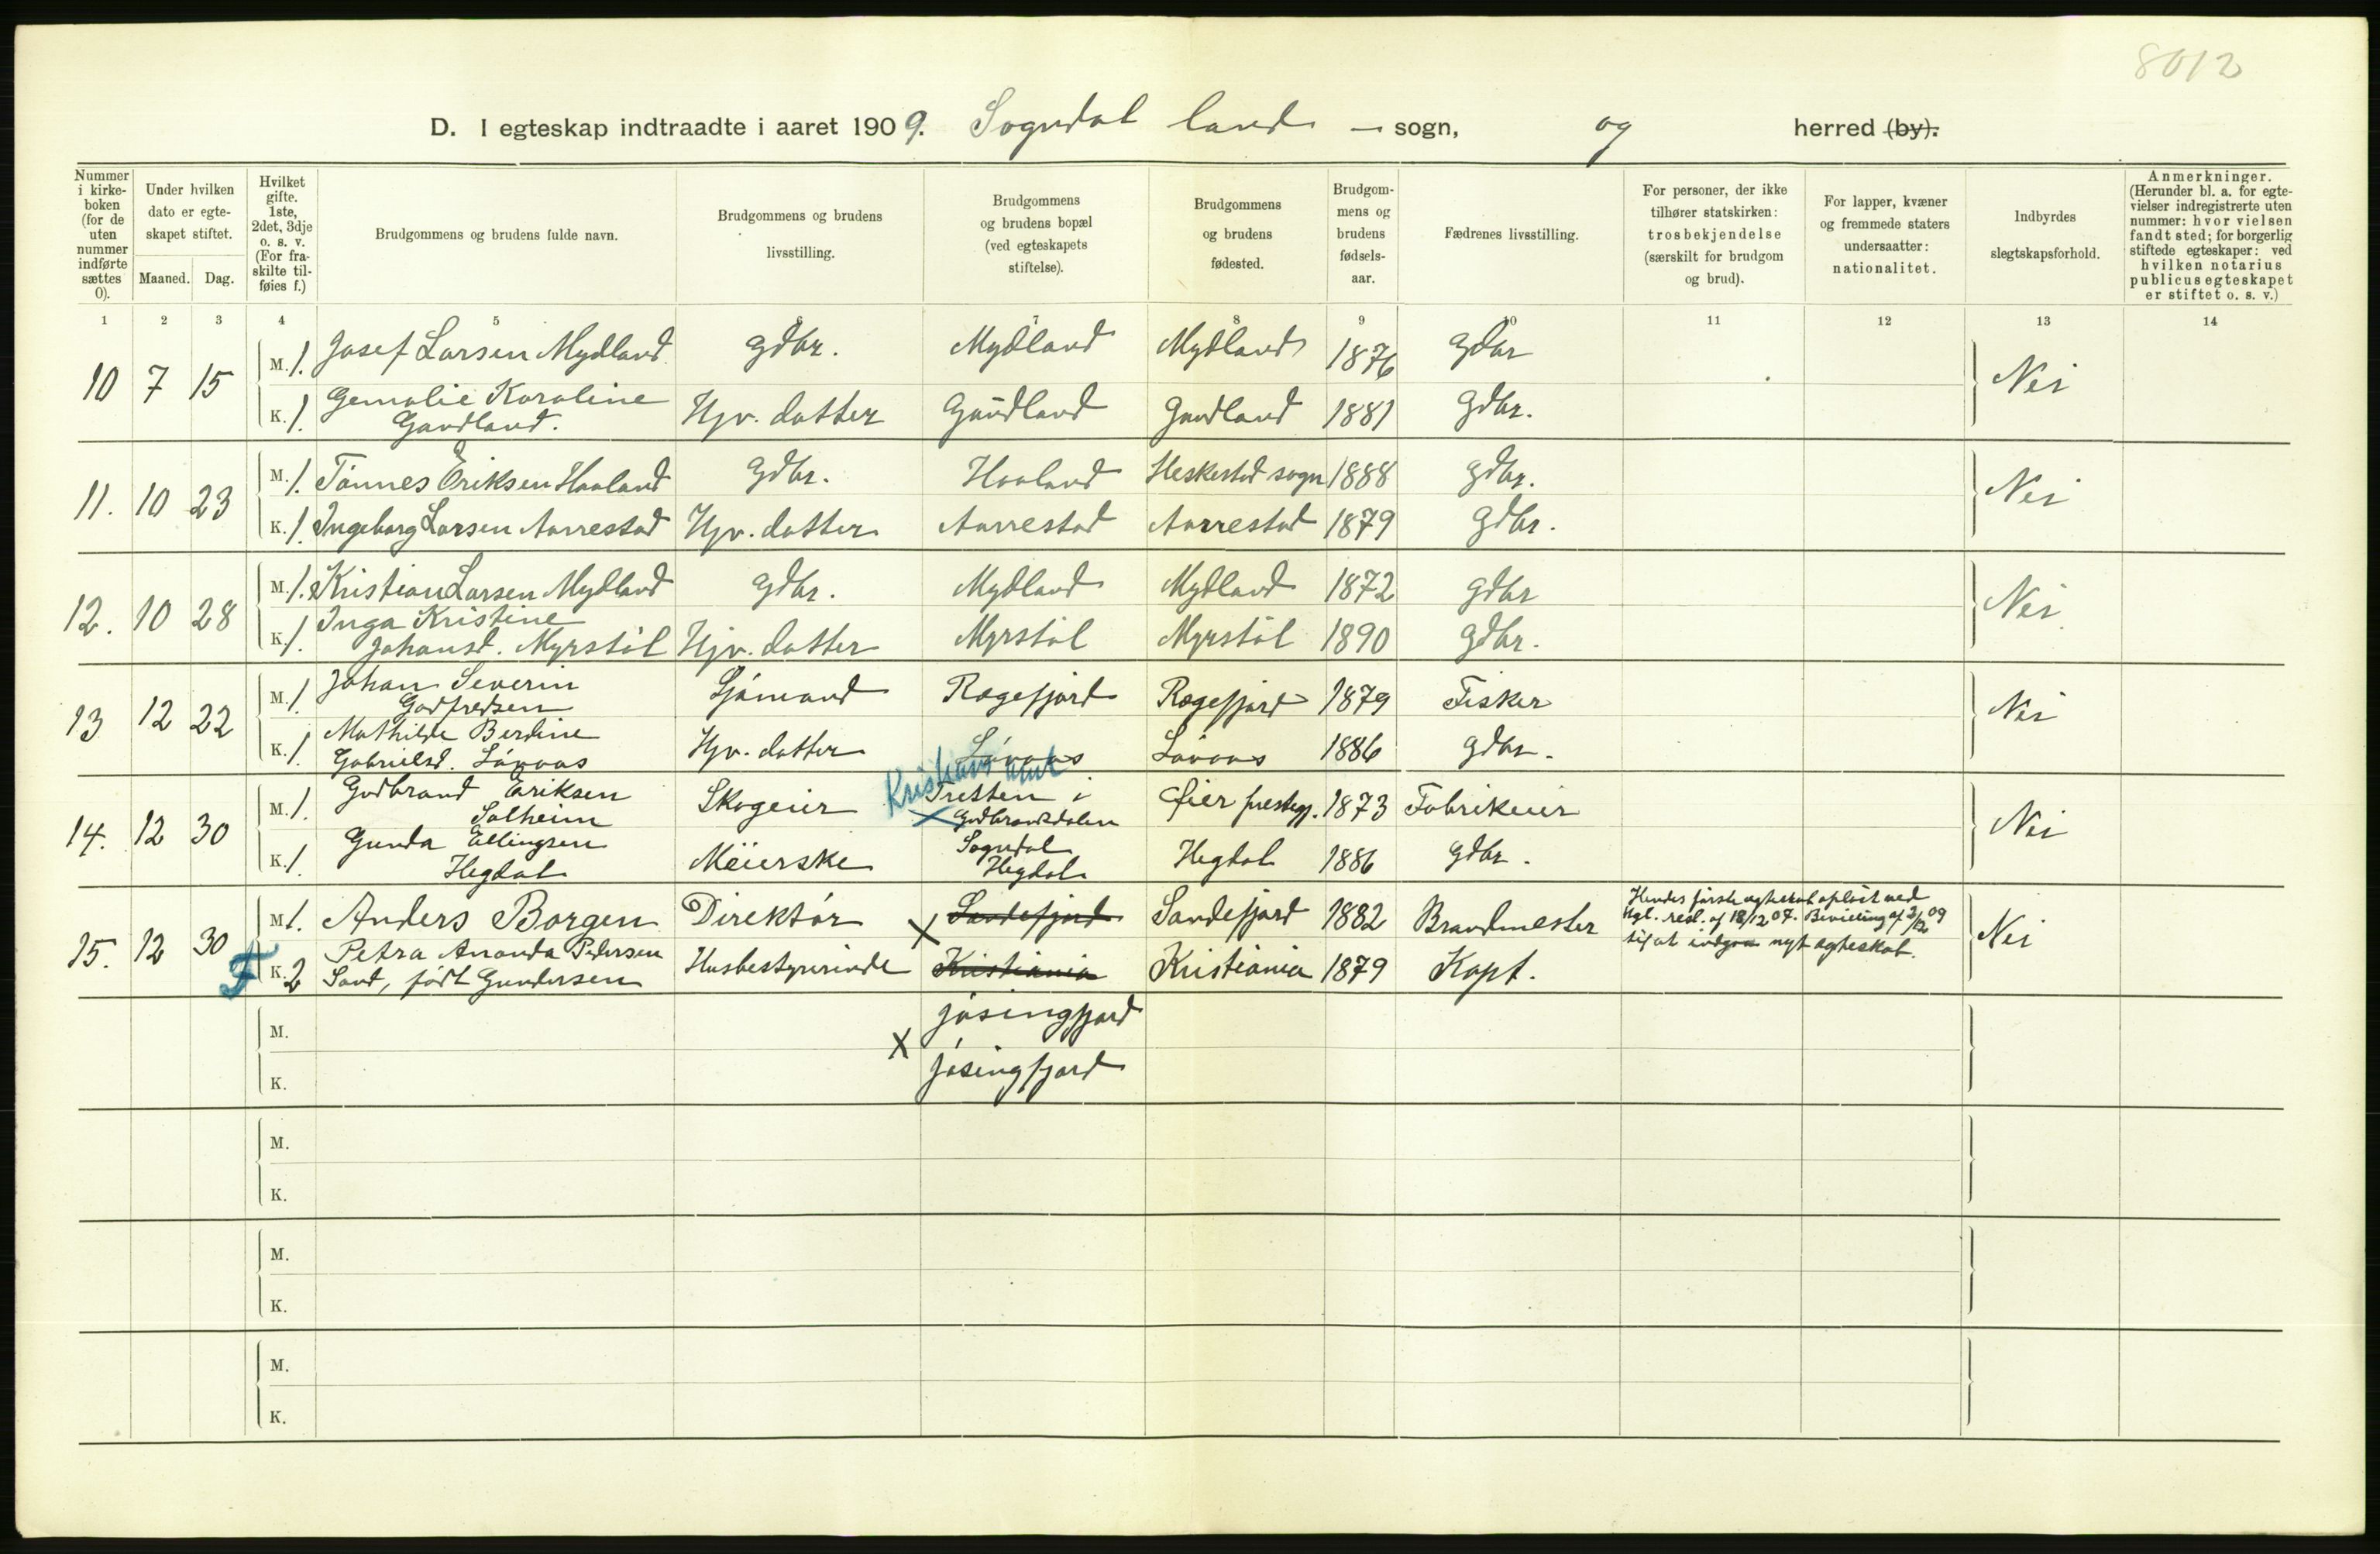 8012
D. I egteskap indtraadte i aaret 1909. Sogndal lands — sogn, og herred (by).
Nummer i kirkeboken (for de uten nummer indførte sættes 0).
Under hvilken dato er egteskapet stiftet.
Maaned. Dag.
Hvilket gifte. 1ste, 2det, 3dje o. s. v. (For fraskilte tilføies f.)
Brudgommens og brudens fulde navn.
Brudgommens og brudens livsstilling.
Brudgommens og brudens bopæl (ved egteskapets stiftelse).
Brudgommens og brudens fødested.
Brudgommens og brudens fødselsaar.
Fædrenes livsstilling.
For personer, der ikke tilhører statskirken: trosbekjendelse (særskilt for brudgom og brud).
For lapper, kvæner og fremmede staters undersaatter: nationalitet.
Indbyrdes slegtskapsforhold.
Anmerkninger. (Herunder bl. a. for egtevielser indregistrerte uten nummer: hvor vielsen fandt sted; for borgerlig stiftede egteskaper: ved hvilken notarius publicus egteskapet er stiftet o. s. v.)
1 2 3 4 5 6 7 8 9 10 11 12 13 14
10 7 15 M. 1. Josef Larsen Mydland gdbr. Mydland Mydland 1876 gdbr Nei
K. 1. Gemalie Karoline Gandland. Hjv. datter Gandland Gandland 1881 gdbr.
11. 10 23 M. 1. Tønnes Eriksen Haaland gdbr. Haaland Heskestad sogn 1888 gdbr. Nei
K. 1. Ingeborg Larsen Aarrestad Hjv. datter Aarrestad Aarrestad 1879 gdbr.
12. 10 28 M. 1. Kristian Larsen Mydland gdbr. Mydland Mydland 1872 gdbr Nei
K. 1. Inga Kristine Johansd. Myrstøl Hjv. datter Myrstøl Myrstøl 1890 gdbr.
13 12 22 M. 1. Johan Severin Godfredsen Sjømand Rægefjord Rægefjord 1879 Fisker Nei
K. 1. Mathilde Berdine Gabrielsd. Løvaas Hjv. datter Løvaas Løvaas 1886 gdbr.
Kristians amt
14. 12 30 M. 1. Gudbrand Eriksen Solheim Skogeier x Tretten i Gudbrandsdalen Øier prestegj. 1873 Fabrikeier Nei
K. 1. Gunda Ellingsen Hegdal Meierske Sogndal Hegdal Hegdal 1886 gdbr.
15. 12 30 M. 1. Anders Borgen Direktør x Sandefjord Sandefjord 1882 Brandmester Hendes første egteskab opløst ved Kgl. resl. af 18/12 07. Bevilling af 2/12 09 til at indgaa nyt egteskab. Nei
F K. 2 Petra Amanda Petersen Sand, født Gundersen Husbestyrerinde Kristiania Kristiania 1879 Kapt.
M. jøsingfjord
x
K. jøsingfjord
M.
K.
M.
K.
M.
K.